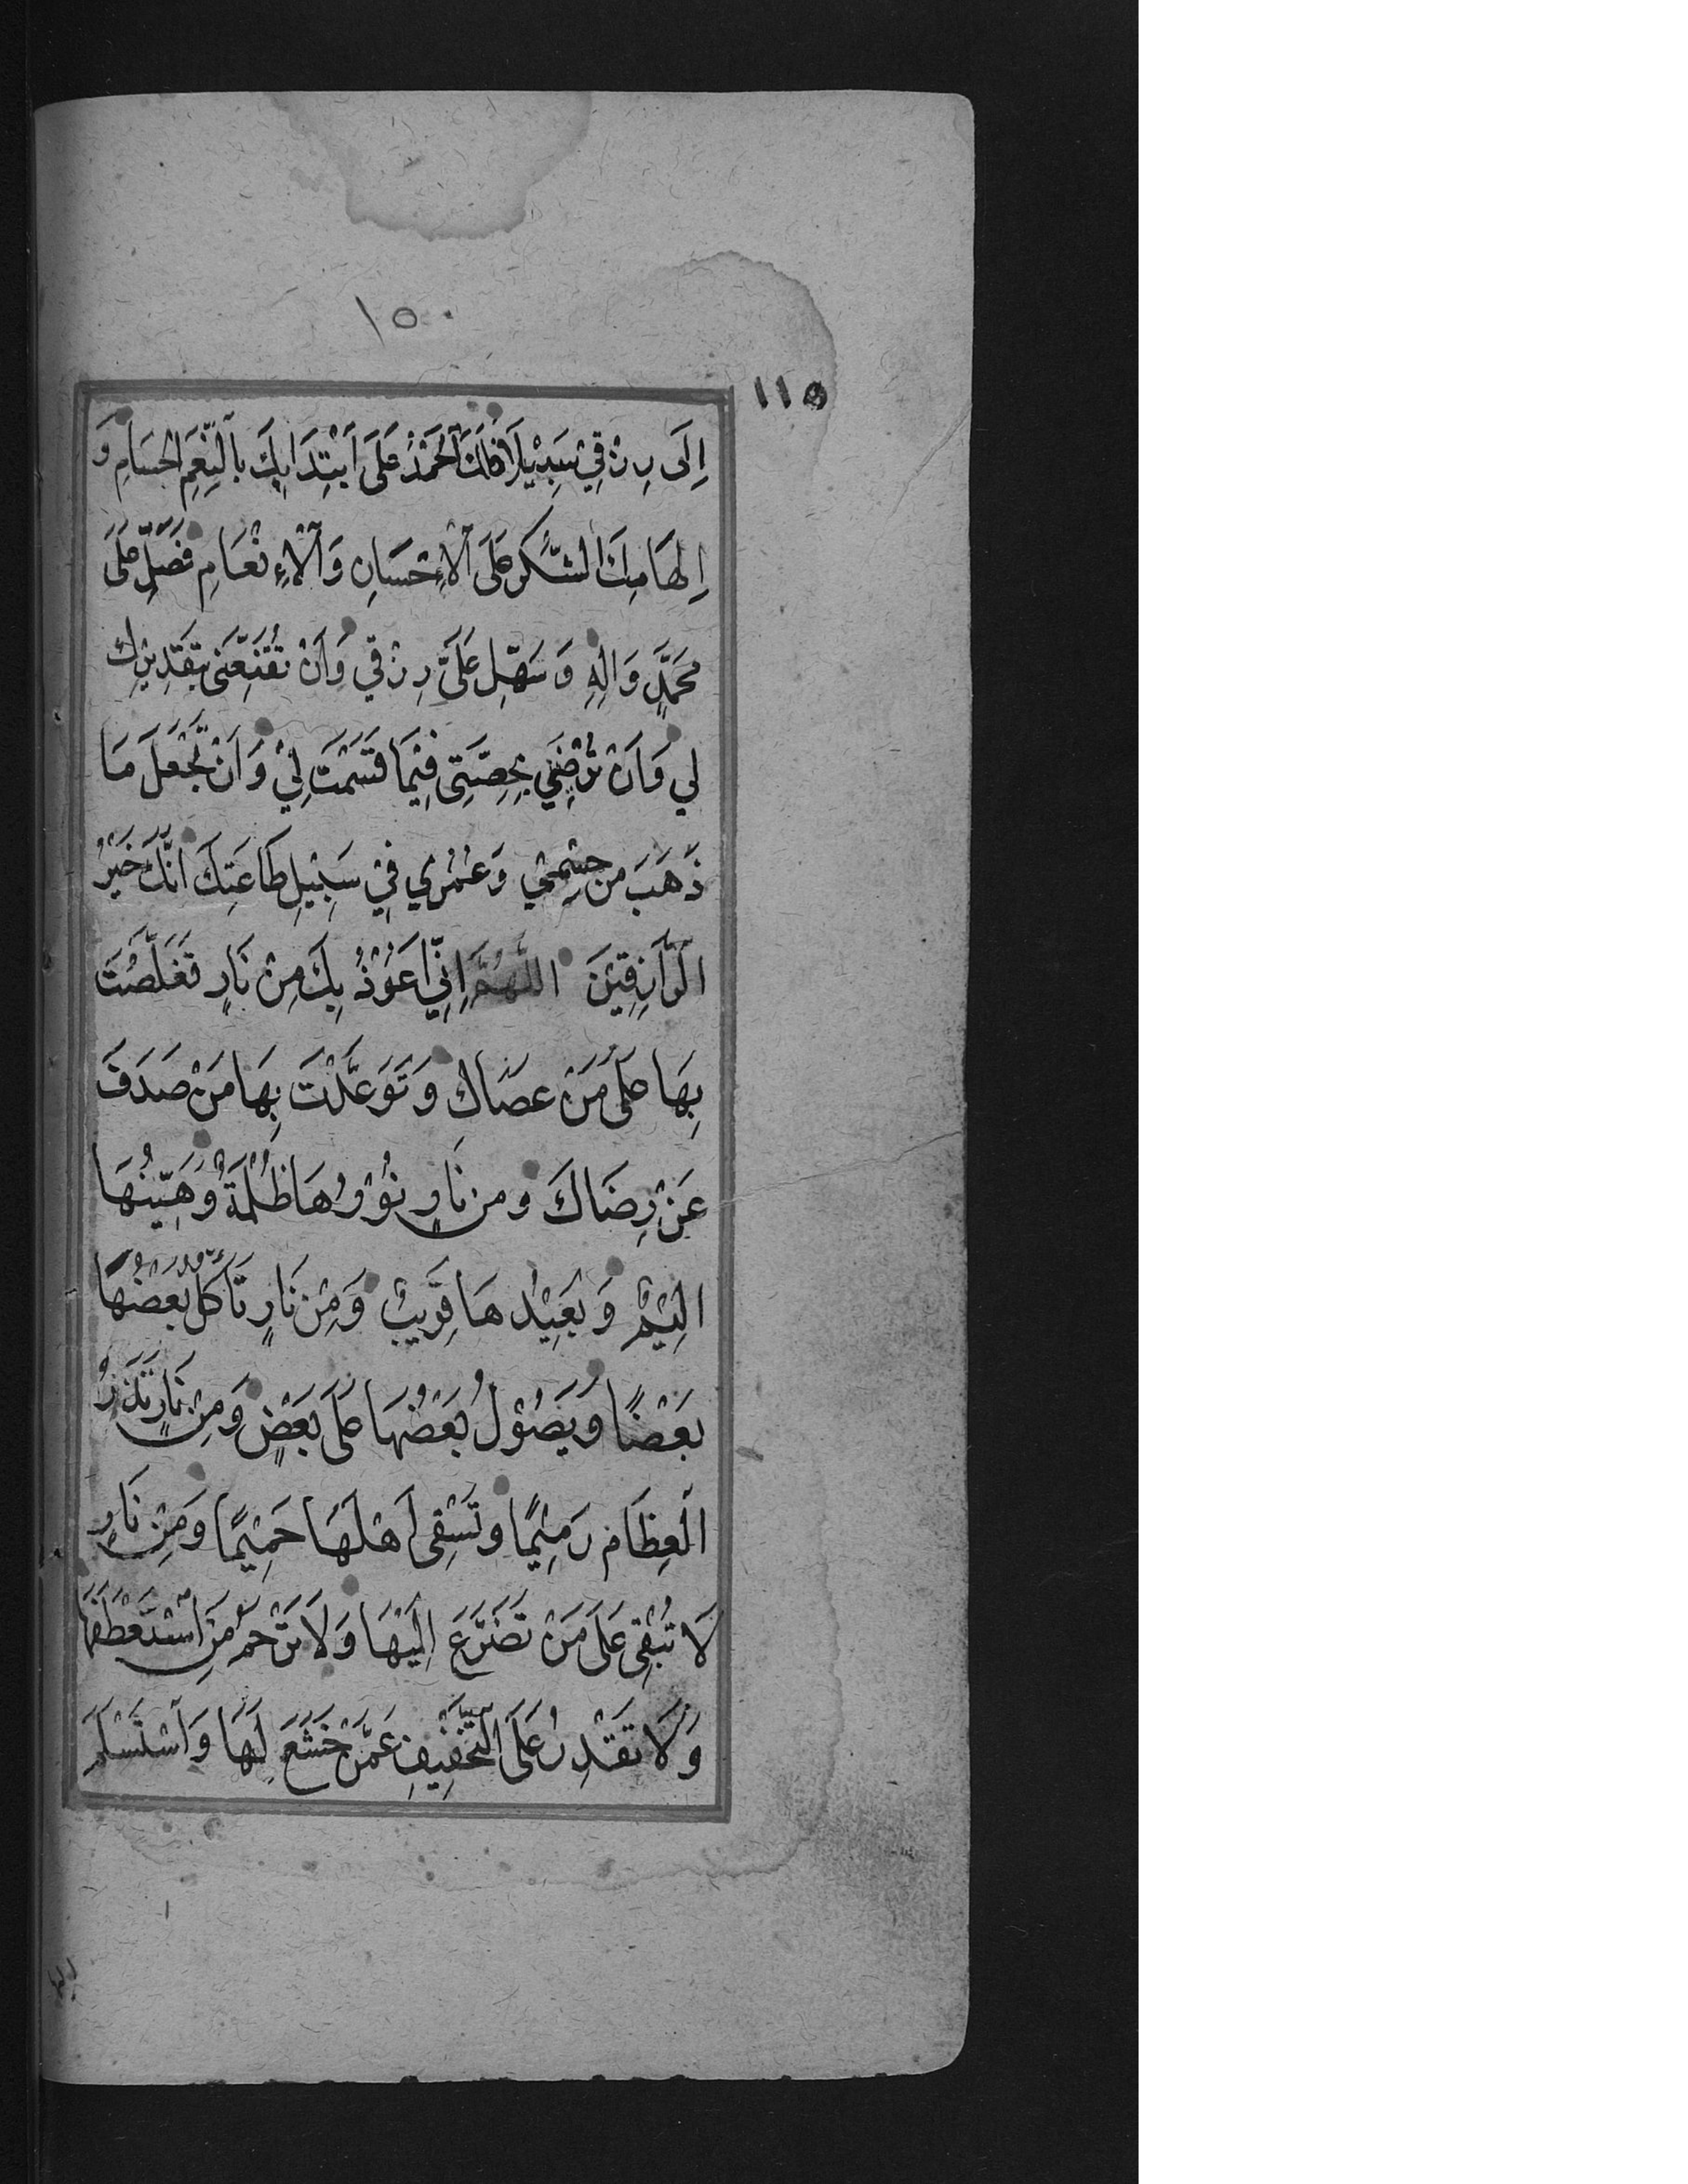 ١٥٠
١١٥
إِلَى رِزْقِيْ سَبِيْلًا فَلَكَ اَلْحَمْدُ عَلَى اَبْتِدَائِكَ بِاَلنِّعَمِ الْجِسَامِ وَ
اِلْهَامِكَ الشُّكْرَ عَلَى اَلْاِحْسَانِ وَاَلْاِنْعَامِ فَصَلِّ عَلَى
مُحَمَّدٍ وَالِهِ وَسَهِّلْ عَلَىَّ رِزْقِي وَاَنْ تُقَنِّعَنِى بِتَقْدِيْرِكَ
لِي وَاَنْ تُرْضِيَنِي بِحِصَّتِى فِيْمَا قَسَمْتَ لِيْ وَاَنْ تَجْعَلَ مَا
ذَهَبَ مِنْ جِسْمِيْ وَعُمْرِي فِيْ سَبِيْلِ طَاعَتِكَ اِنَّكَ خَيْرُ
اَلرَّازِقِيْنَ اَللّٰهُمَّ اِنِّيْ اَعُوْذُ بِكَ مِنْ نَارٍ تَغَلَّظْتَ
بِهَا عَلَى مَنْ عَصَاكَ وَتَوَعَّدْتَ بِهَا مَنْ صَدَفَ
عَنْ رِضَاكَ وَمِنْ نَارٍ نُوْرُهَا ظُلْمَةٌ وَهَيِّنُهَا
اَلِيْمٌ وَبَعِيْدُهَا قَرِيْبٌ وَمِنْ نَارٍ تَأْكُلُ بَعْضُهَا
بَعْضًا وَيَصُوْلُ بَعْضُهَا عَلَى بَعْضٍ وَمِنْ نَارٍ تَذَرُ
اَلْعِظَامَ رَمِيْمًا وَتَسْقِى اَهْلَهَا حَمِيْمًا وَمِنْ نَارٍ
لَا تُبْقِى عَلَى مَنْ تَضَرَّعَ اِلَيْهَا وَلَا تَرْحَمُ مَنِ اَسْتَعْطَفَهَا
وَلَا تَقْدِرُ عَلَى اَلتَّخْفِيْفِ عَمَّنْ خَشَعَ لَهَا وَاَسْتَسْلَمَ